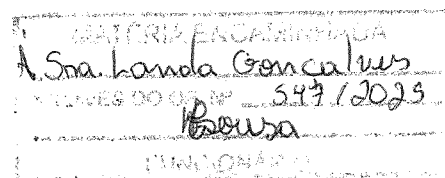 MATÉRIA ENCAMINHADA
À Sra. Landa Gonçalves
ATRAVÉS DO OF. Nº 547/2023
Psouza
FUNCIONÁRIO